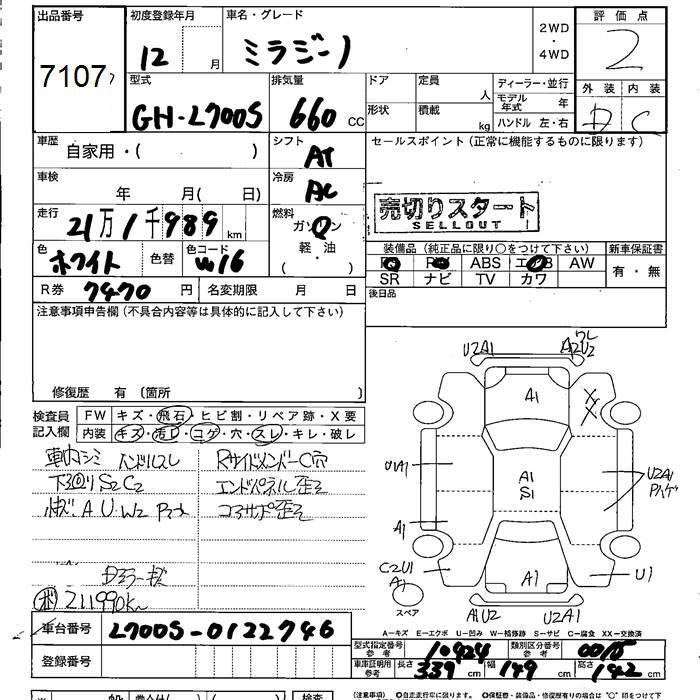 出品番号
7107
初度登録年月
12 月
車名・グレード
ミラジーノ
2WD
・
4WD
評価点
2
外装 内装
D C
型式
GH-L700S
排気量
660 cc
ドア
形状
定員 人
積載 kg
ディーラー・並行
モデル年式 年
ハンドル 左・右
車歴
自家用・( )
シフト
AT
セールスポイント(正常に機能するものに限ります)
車検
年 月( 日)
冷房
AC
走行
21万1千989km
燃料
ガソリン
軽・油
( )
売切りスタート
SELLOUT
色
ホワイト
色替
色コード
W16
装備品(純正品に限り○をつけて下さい)
ABS エアB AW
SR ナビ TV カワ
新車保証書
有・無
R券 7470円
名変期限 月 日
後日品
注意事項申告欄(不具合内容等は具体的に記入して下さい)
修復歴 有〔箇所 〕
検査員記入欄
FW キズ・飛石・ヒビ割・リペア跡・X要
内装 キズ・汚レ・コゲ・穴・スレ・キレ・破レ
車内シミ ハンドルスレ
下回りS2C2
RサイドメンバーC穴
エンドパネル歪ミ
コアサポ歪ミ
Dミラーキズ
211990km
車台番号 L700S-0122746
登録番号
U2A1
A2U2
A1
XX
U1A1
A1
S1
U2A1
Pハゲ
A1
C2U1
A1
A1
U1
スペア
A1U2
U2A1
A―キズ E―エクボ U―凹み W―補修跡 S―サビ C―腐食 XX―交換済
型式指定番号 参考 10424
類別区分番号 参考 0015
車庫証明用 参考 長さ 339cm 幅 149cm 高さ 142cm